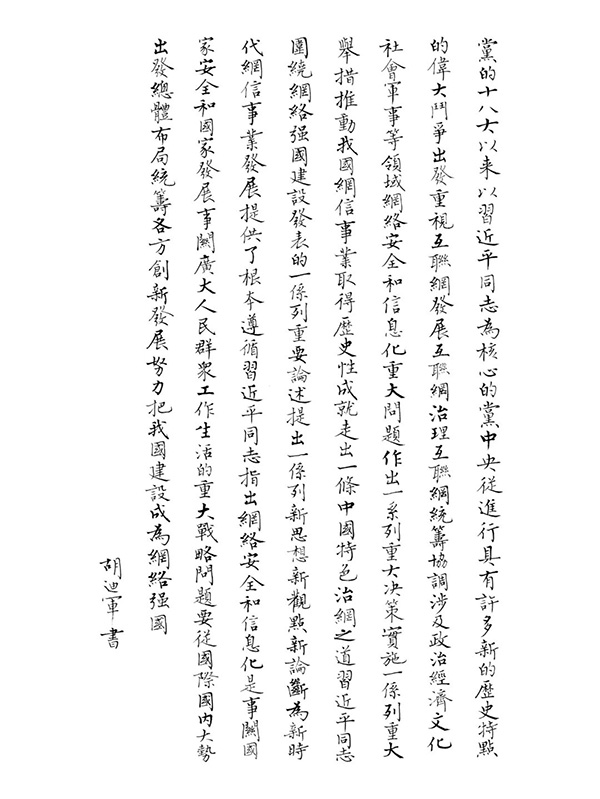 黨的十八大以来以習近平同志為核心的黨中央從進行具有許多新的歷史特點
的偉大鬥爭出發重視互聯網發展互聯網治理互聯網統籌協調涉及政治經濟文化
社會軍事等領域網絡安全和信息化重大問題作出一系列重大决策實施一係列重大
舉措推動我國網信事業取得歷史性成就走出一條中國特色治網之道習近平同志
圍繞網絡强國建設發表的一係列重要論述提出一係列新思想新觀點新論斷為新時
代網信事業發展提供了根本遵循習近平同志指出網絡安全和信息化是事關國
家安全和國家發展事關廣大人民群衆工作生活的重大戰略問題要從國際國内大勢
出發總體布局統籌各方創新發展努力把我國建設成為網絡强國
胡迪軍書